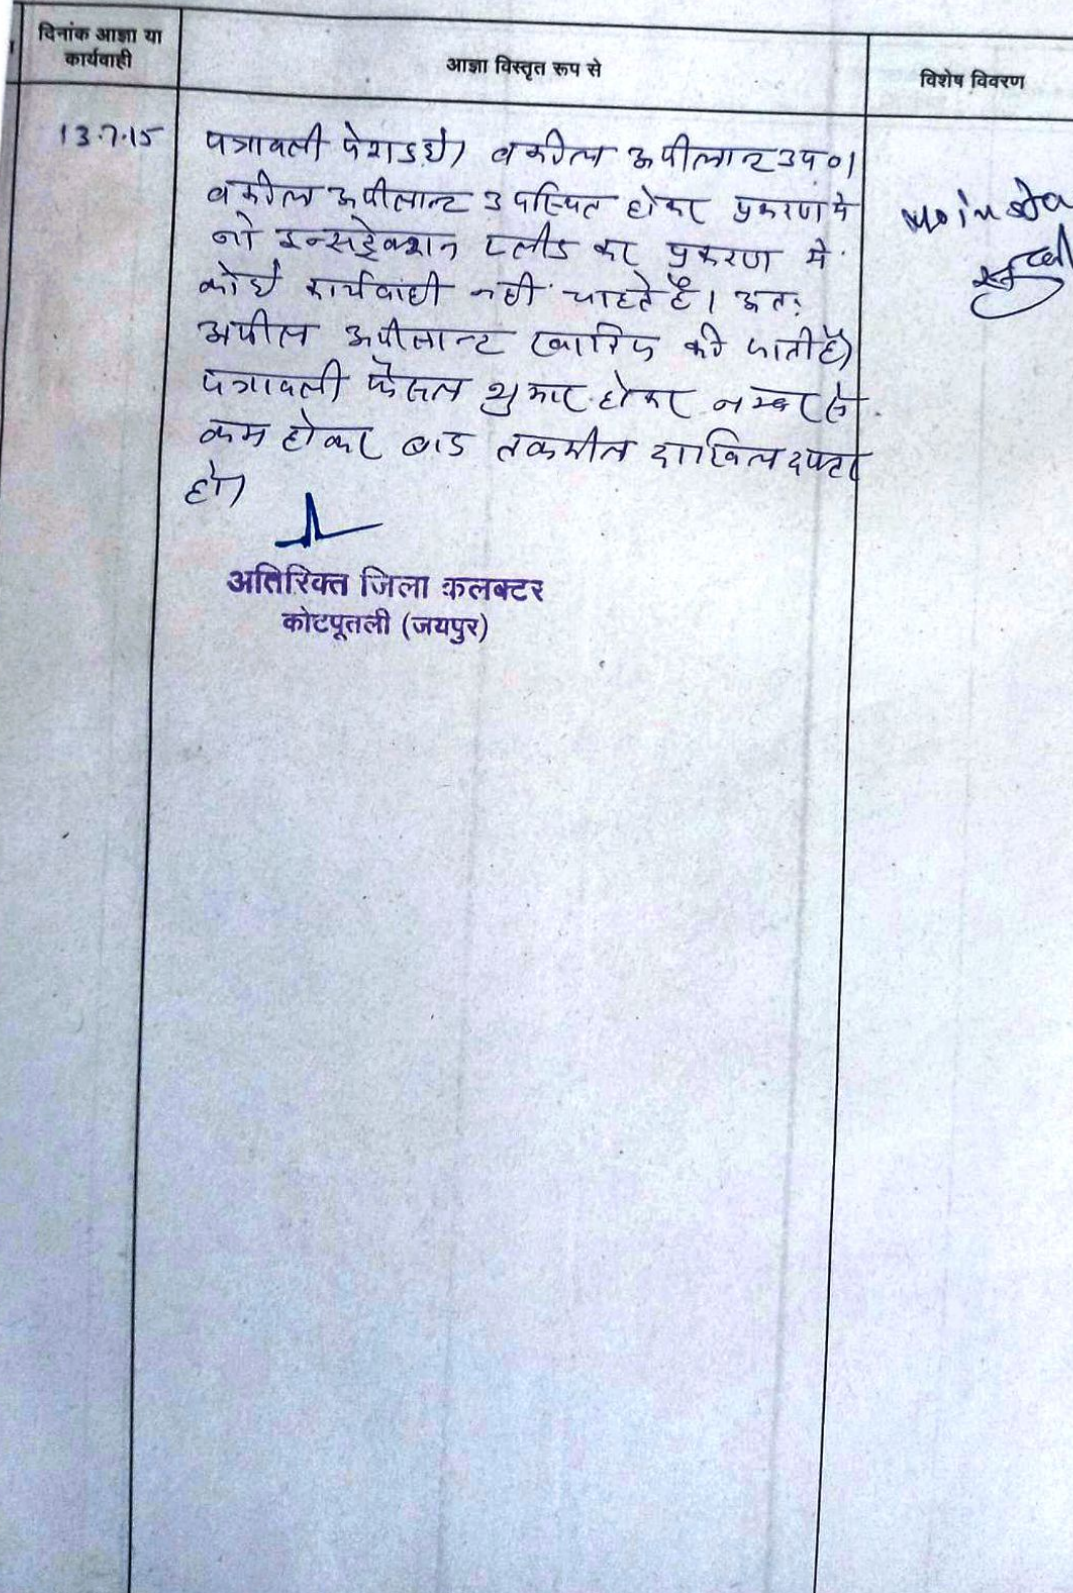 दिनांक आज्ञा या
कार्यवाही
आज्ञा विस्तृत रूप से
विशेष विवरण
13.7.15
पत्रावली पेश हुई। वकील अपीलान्ट उप०।
वकील अपीलान्ट उपस्थित होकर प्रकरण मे
नो इन्सट्रेक्शन प्लीड कर प्रकरण मे
कोई कार्यवाही नही चाहते है। अतः
अपील अपीलान्ट खारिज की जाती है।
पत्रावली फैसल शुमार होकर नम्बर से
कम होकर बाद तकमील दाखिल दफ्तर
हो।
No
अतिरिक्त जिला कलक्टर
कोटपूतली (जयपुर)